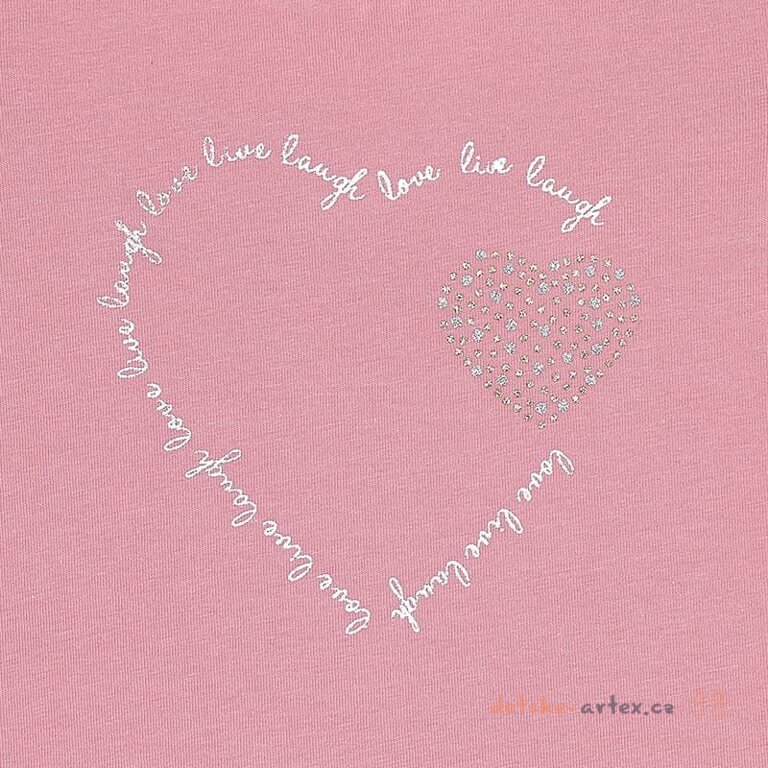 love live laugh love live laugh love live laugh love live laugh
love live laugh
detske-artex.cz